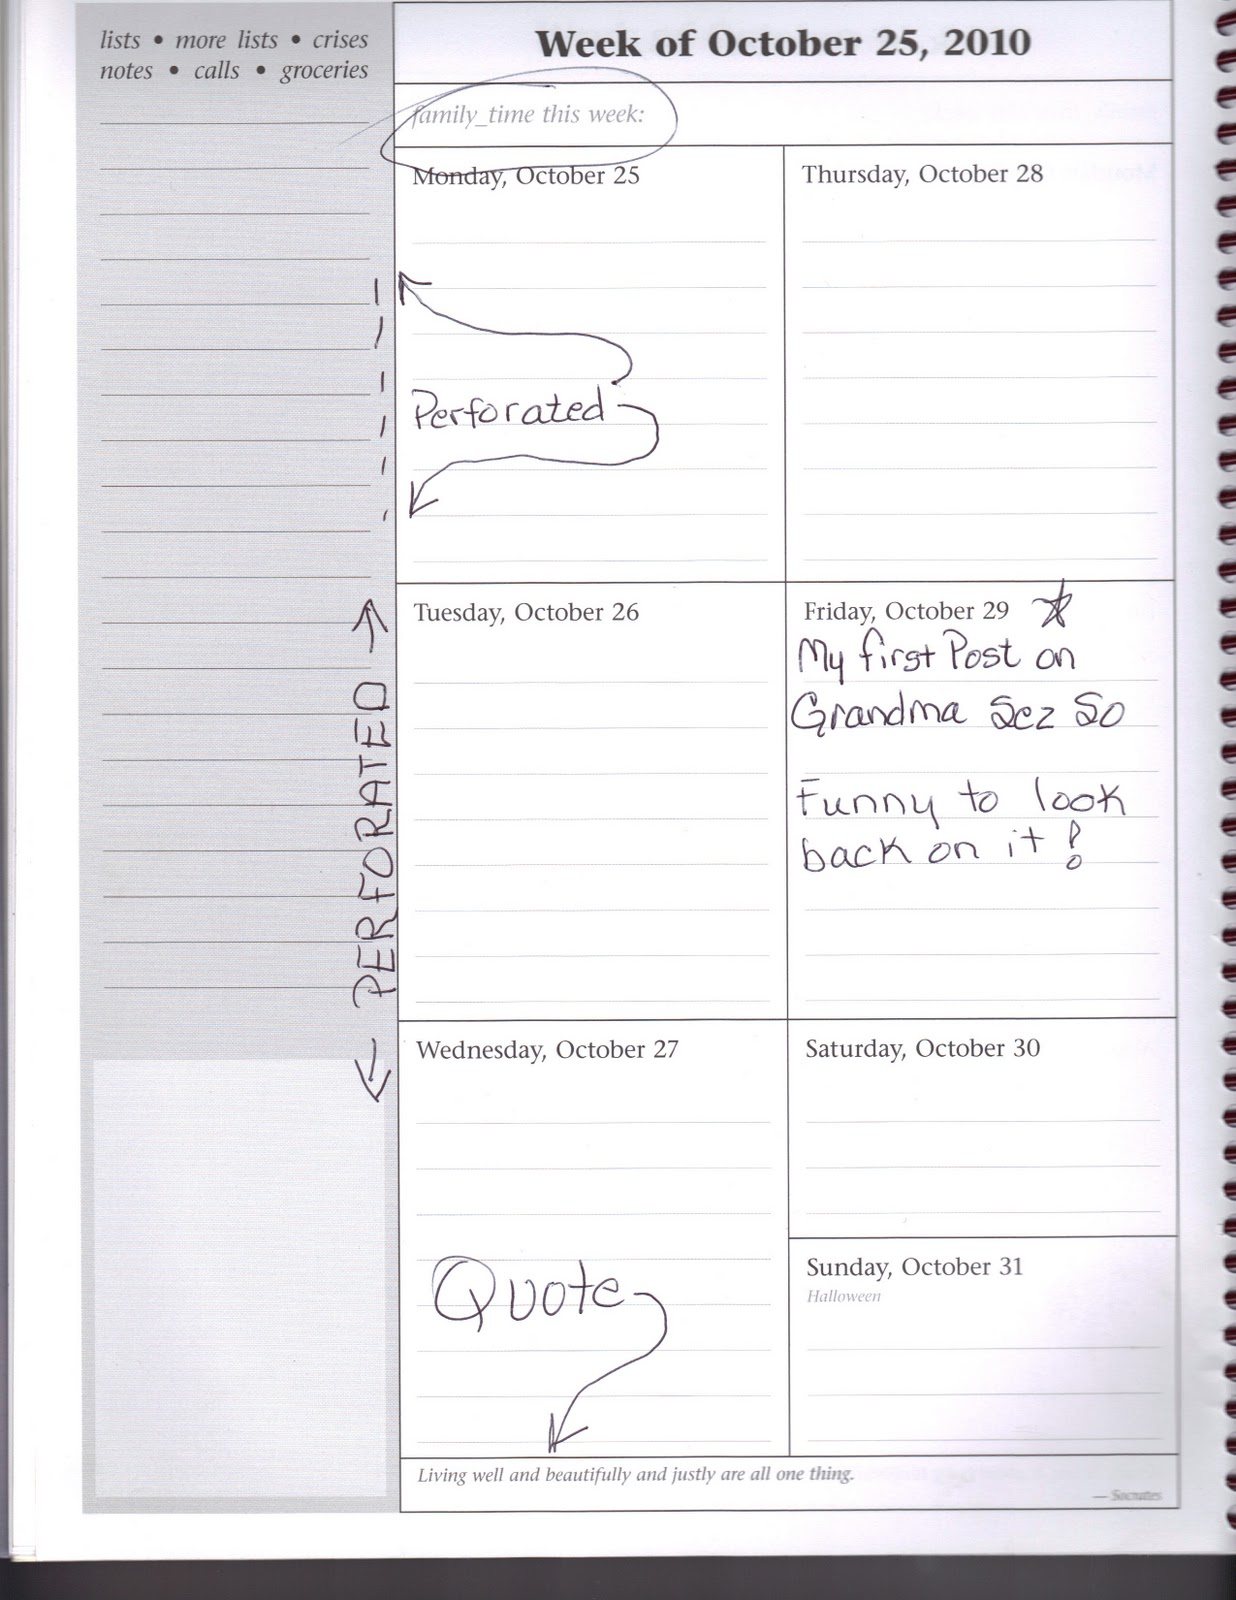 lists • more lists • crises
notes • calls • groceries
Week of October 25, 2010
family_time this week:
Monday, October 25
Perforated
PERFORATED
Tuesday, October 26
Wednesday, October 27
Quote
Thursday, October 28
Friday, October 29
My first Post on
Grandma Sez So
Funny to look
back on it!
Saturday, October 30
Sunday, October 31
Halloween
Living well and beautifully and justly are all one thing.
— Socrates